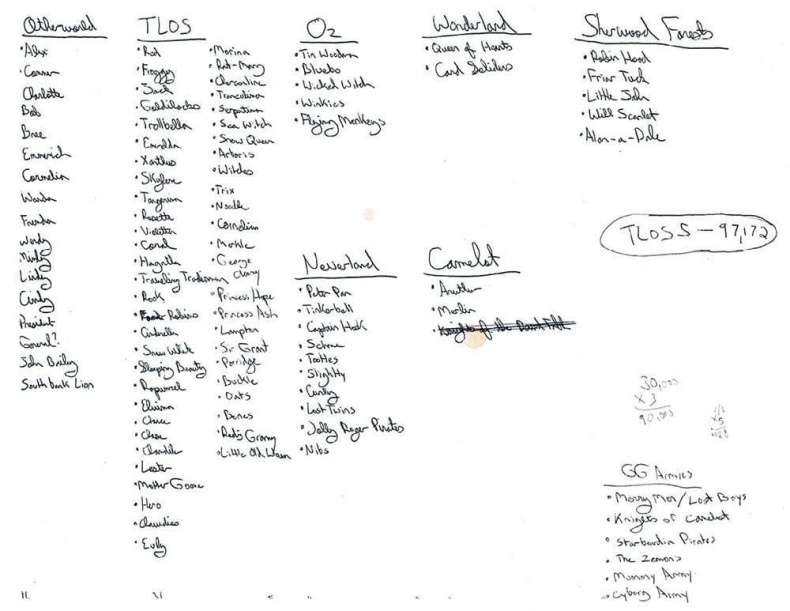 Otherworld
• Alex
Conner
Charlotte
Bob
Bree
Emmerich
Cornelia
Wanda
Frenda
Wendy
Mindy
Lindy
Cindy
President
Gound?
John Bailey
South bank Lion
TLOS
• Red
• Froggy
• Jack
• Goldilocks
• Trollbella
• Emerelda
• Xanthus
• Skylene
• Tangerina
• Rosette
• Violetta
• Coral
• Hagatha
• Traveling Tradesman
• Rook
• Robins
• Cinderella
• Snow White
• Sleeping Beauty
• Rapunzel
• Chance
• Chase
• Chandler
• Lester
• Mother Goose
• Hero
• Claudius
• Evly
• Morina
• Rat-Mary
• Charcoaline
• Serpentina
• Sea Witch
• Snow Queen
• Arboris
• Witches
• Trix
• Noelle
• Cornelius
• Merkle
• George
• Princess Hope
• Princess Ash
• Lampton
• Sir Grant
• Porridge
• Buckle
• Oats
• Bones
• Red's Granny
• Little Old Woman
Oz
• Tin Woodman
• Bluebo
• Wicked Witch
• Winkies
• Flying Monkeys
Neverland
• Peter Pan
• Tinkerbell
• Captain Hook
• Tootles
• Slightly
• Curly
• Lost Twins
• Jolly Roger Pirates
• Nibs
Wonderland
• Queen of Hearts
• Card Soliders
Camelot
• Merlin
Sherwood Forests
• Robin Hood
• Friar Tuck
• Little John
• Will Scarlet
• Alan-a-Dale
TLOS 5 – 97,172
30,000
x 3
90,000
GG Armies
• Merry Men/Lost Boys
• Knights of Camelot
• Starboardia Pirates
• The Ziemons
• Mummy Army
• Cyborg Army